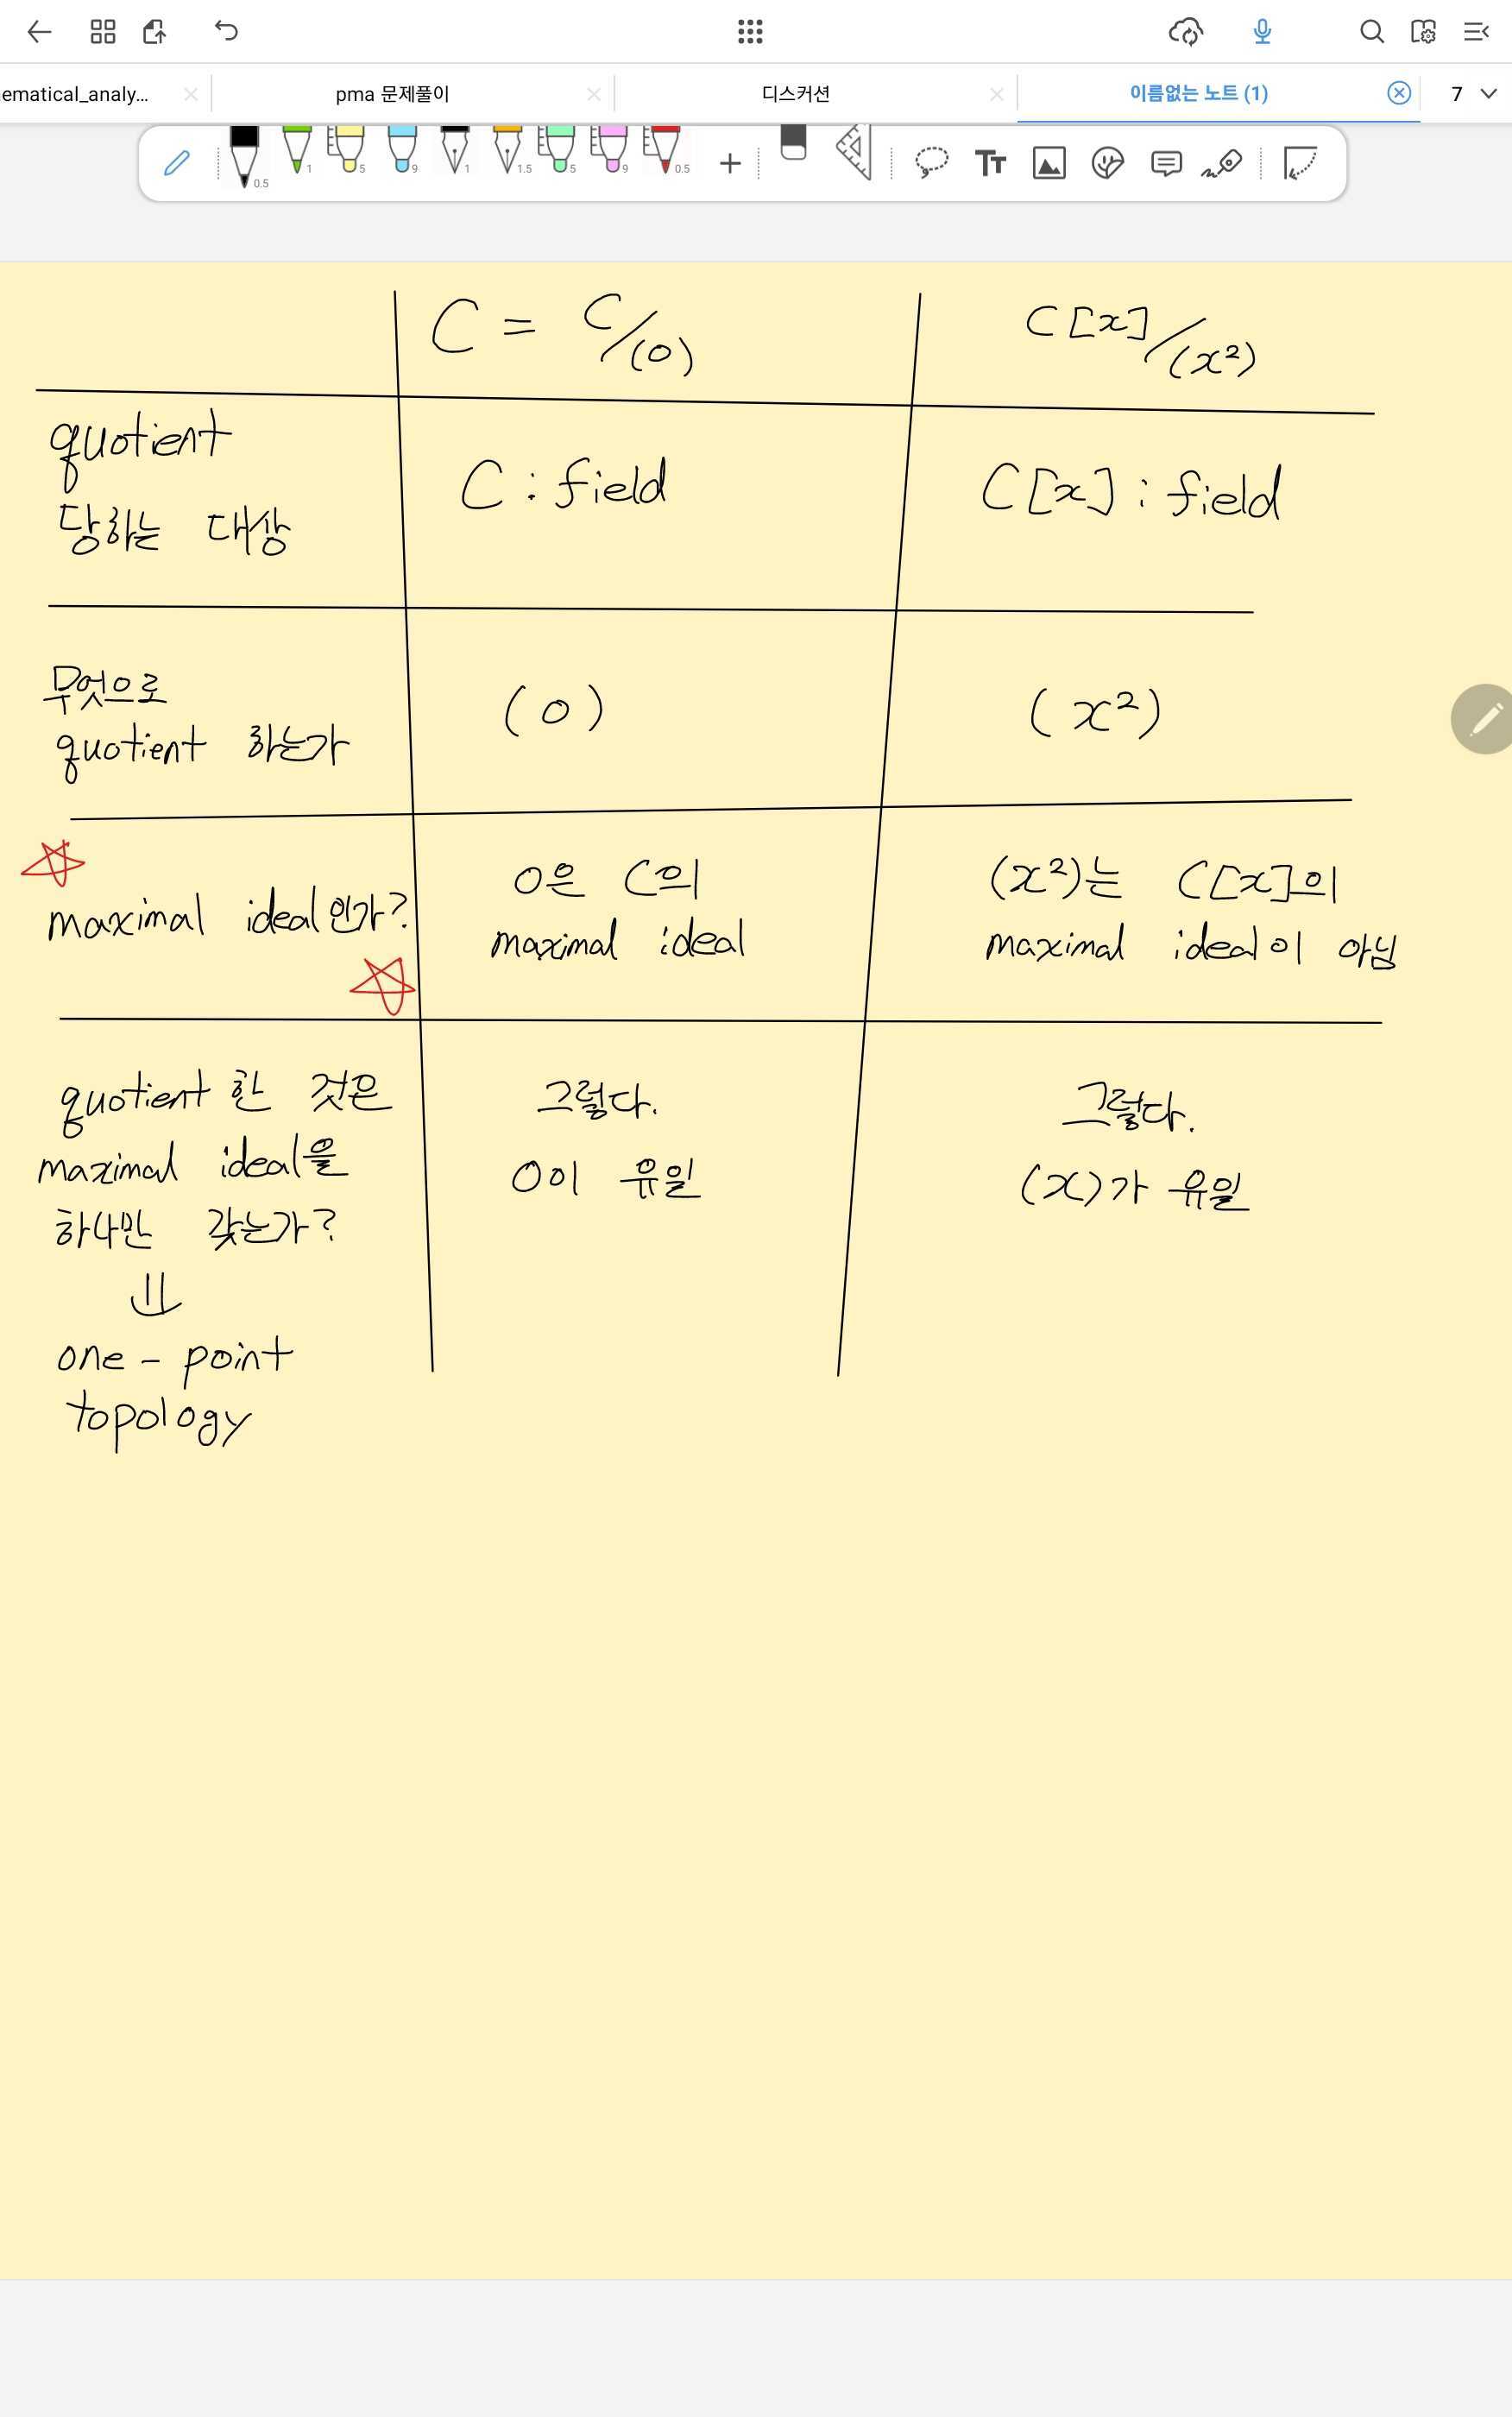 ematical_analy...
pma 문제풀이
디스커션
이름없는 노트 (1)
7
0.5
1
5
9
1
1.5
5
9
0.5
Tт
C = C/(0)
C[x]/(x²)
quotient
당하는 대상
C : field
C[x] : field
무엇으로
quotient 하는가
(0)
(x²)
maximal ideal인가?
0은 C의
maximal ideal
(x²)는 C[x]의
maximal ideal이 아님
quotient 한 것은
maximal ideal을
하나만 갖는가?
⇓
one - point
topology
그렇다.
0이 유일
그렇다.
(x)가 유일